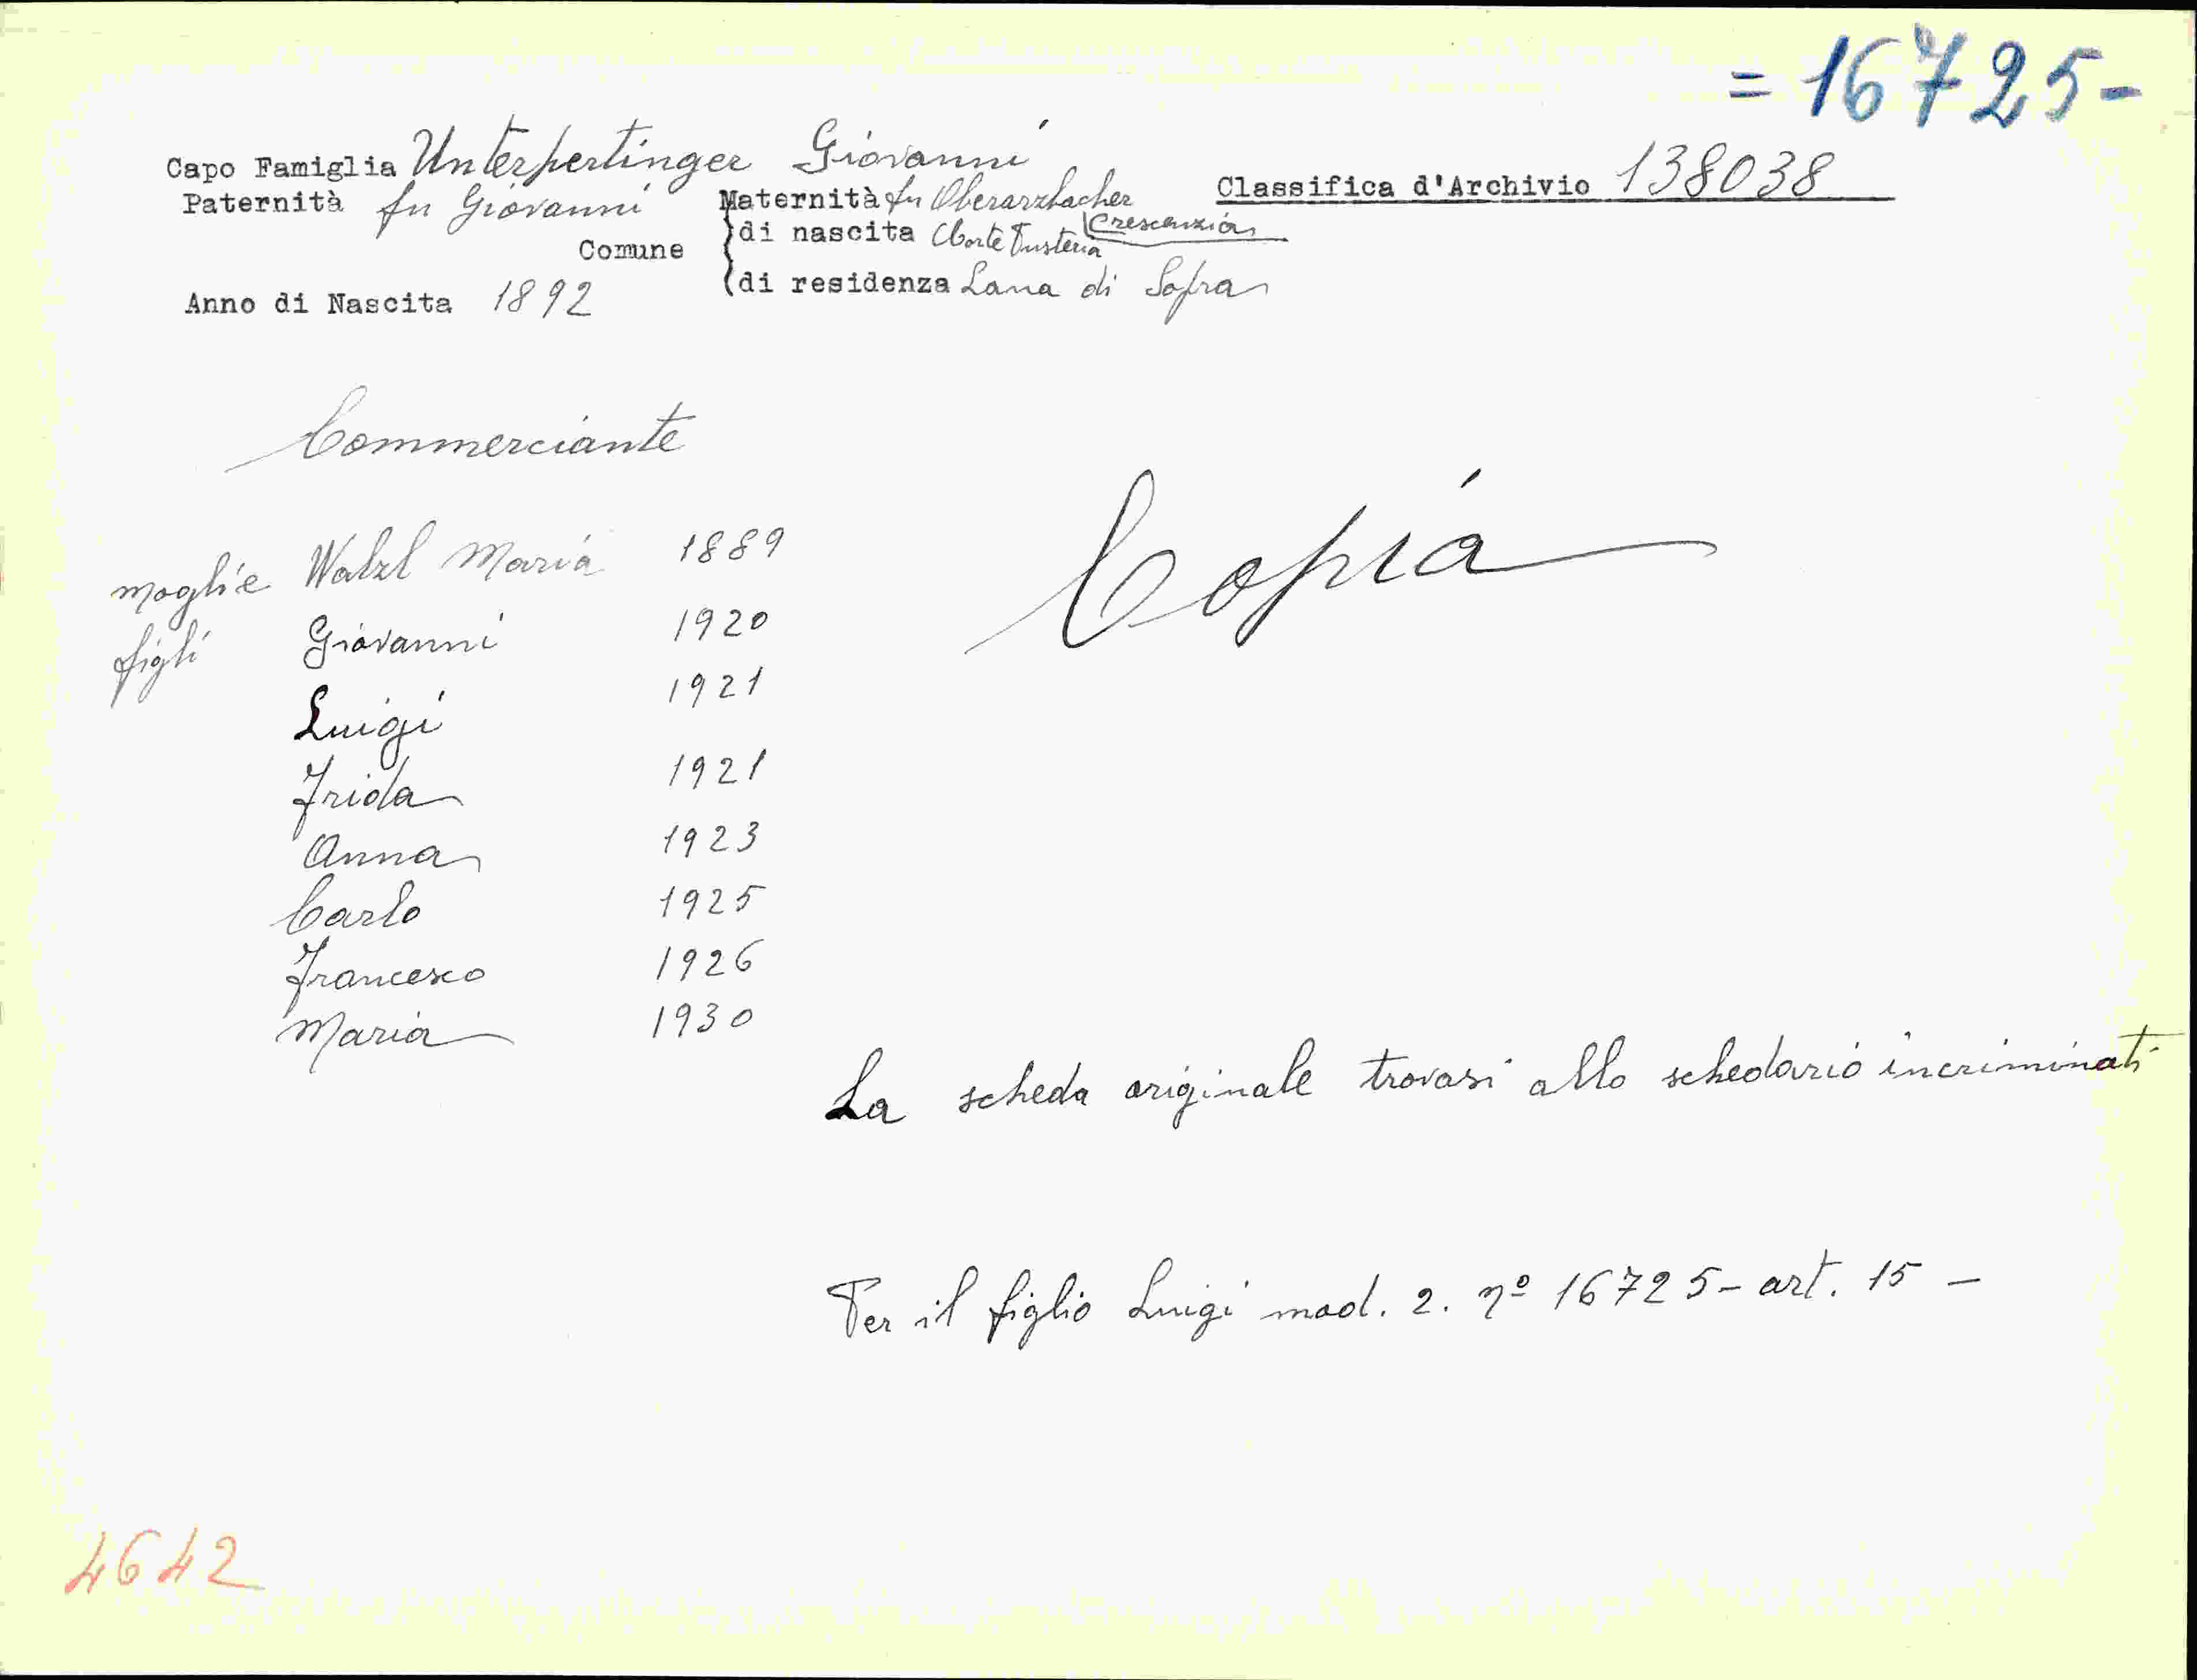 = 16725-
Capo Famiglia Unterpertinger Giovanni
Classifica d'Archivio 138038
Paternità fu Giovanni Maternità fu Oberarzbacher Crescenzia
Comune
di nascita Corte Pusteria
di residenza Lana di Sopra
Anno di Nascita 1892
Commerciante
Copia
moglie Walzl Maria 1889
figli Giovanni 1920
Luigi 1921
Frida 1921
Anna 1923
Carlo 1925
Francesco 1926
Maria 1930
La scheda originale trovasi allo schedario incriminati
Per il figlio Luigi mod. 2. nº 16725- art. 15 -
4642